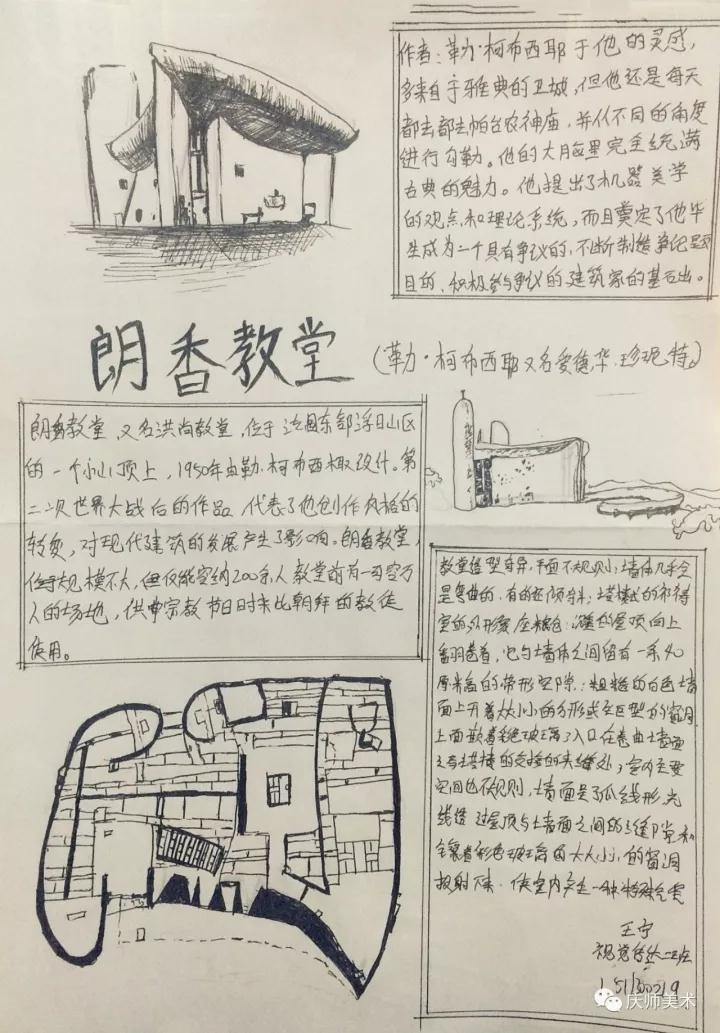 作者:勒·柯布西耶于他的灵感,
多来自于雅典的卫城,但他还是每天
都去都去帕台农神庙,并从不同的角度
进行勾勒。他的大脑里完全充满
古典的魅力。他提出了机器美学
的观点和理论系统,而且奠定了他毕
生成为一个具有争议的,不断制造争论题
目的,积极参与争议的建筑家的基石出。
朗香教堂
(勒·柯布西耶又名爱德华·珍妮特。)
朗香教堂,又名洪尚教堂,位于法国东部浮日山区
的一个小山顶上,1950年由勒·柯布西椰设计。第
二次世界大战后的作品,代表了他创作风格的
转变,对现代建筑的发展产生了影响。朗香教堂,
规模不大,仅能容纳200余人,教堂前有一可容万
人的场地,供宗教节日时来此朝拜的教徒
使用。
教堂造型奇异,平面不规则;墙体几乎全
是弯曲的,有的还倾斜;塔楼式的祈祷
室的外形象座粮仓;屋顶向上
翻卷着,它与墙体之间留有一条40
厘米高的带形空隙;粗糙的白色墙
面上开着大小的方形或矩型的窗洞
上面嵌着彩色玻璃;入口在卷曲墙面
与塔楼的交接的夹缝处;室内主要
空间也不规则,墙面呈弧线形,光
线透过屋顶与墙面之间的缝隙和
镶着彩色玻璃的大大小小的窗洞
投射下来,使室内产生一种特殊气氛
王宁
视觉传达二班
庆师美术